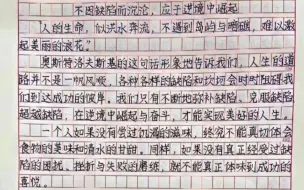 不因缺陷而沉沦，应于逆境中崛起
"人的生命，似洪水奔流，不遇到岛屿与暗礁，难以激
起美丽的浪花。"
奥斯特洛夫斯基的这句话形象地告诉我们，人生的道
路并不是一帆风顺，各种各样的缺陷和坎坷会时时阻碍我
们到达成功的彼岸。我们只有不断地弥补缺陷、克服缺陷
超越缺陷，在逆境中崛起与奋斗，才能实现美好的人生。
一个人如果没有尝过饥渴的滋味，终究不能真切体会
食物的美味和清水的甘甜。同样，如果没有真正经受过缺
陷的困扰、挫折与失败的磨练，就不能真正体味到成功的
喜悦。